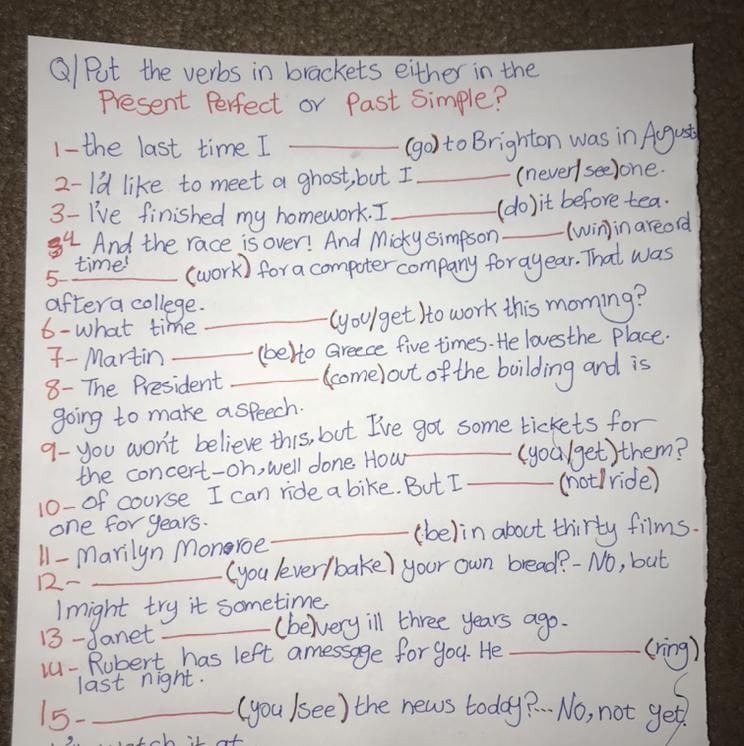 Q/ Put the verbs in brackets either in the
Present Perfect or Past Simple?
1- the last time I ________ (go) to Brighton was in August
2- I'd like to meet a ghost, but I ________ (never/see) one.
3- I've finished my homework. I ________ (do) it before tea.
4 And the race is over! And Micky Simpson ________ (win) in a reord
time!
5- ________ (work) for a computer company for a year. That was
after a college.
6- what time ________ (you/get) to work this morning?
7- Martin ________ (be) to Greece five times. He loves the Place.
8- The President ________ (come) out of the building and is
going to make a speech.
9- you won't believe this, but I've got some tickets for
the concert-oh, well done. How ________ (you/get) them?
10- of course I can ride a bike. But I ________ (not/ride)
one for years.
11- Marilyn Monoroe ________ (be) in about thirty films.
12- ________ (you/ever/bake) your own bread? - No, but
I might try it sometime
13- Janet ________ (be) very ill three years ago.
14- Rubert has left a message for you. He ________ (ring)
last night.
15- ________ (you/see) the news today?... No, not yet.
watch it at